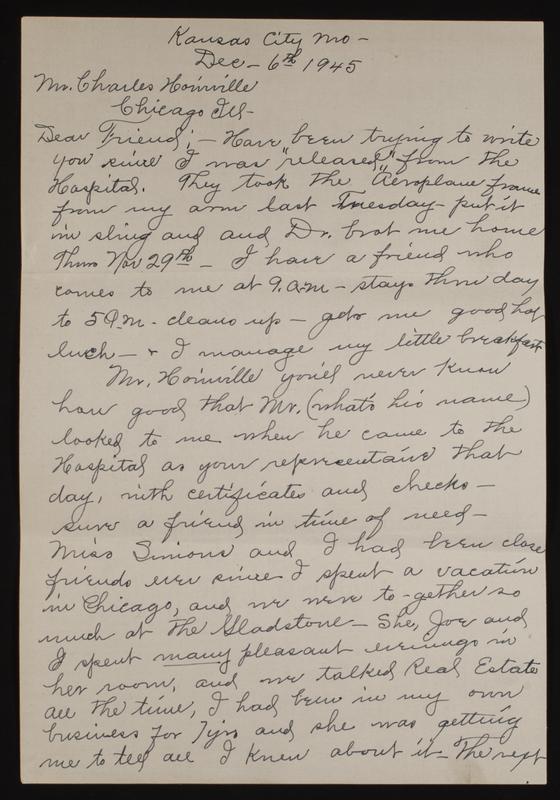 Kansas City Mo-
Dec- 6th 1945
Mr. Charles Hoinville
Chicago Ill-
Dear Friend;- Have been trying to write
you since I was "released" from the
Hospital. They took the "Aeroplane frame
from my arm last Tuesday- put it
in sling and and Dr. brot me home
Thurs Nov 29th- I have a friend who
comes to me at 9. a.m- stays thru day
to 5 P.M. cleans up- gets me good hot
lunch- & I manage my little breakfast
Mr. Hoinville you'll never know
how good that Mr. (what's his name)
looked to me when he came to the
Hospital as your representaive that
day, with certificates and checks-
sure a friend in time of need-
Miss Simons and I had been close
friends ever since I spent a vacation
in Chicago, and we were to-gether so
much at the Gladstone- She, Joe and
I spent many pleasant evenings in
her room, and we talked Real Estate
all the time, I had been in my own
business for 7yrs and she was getting
me to tell all I knew about it- The next